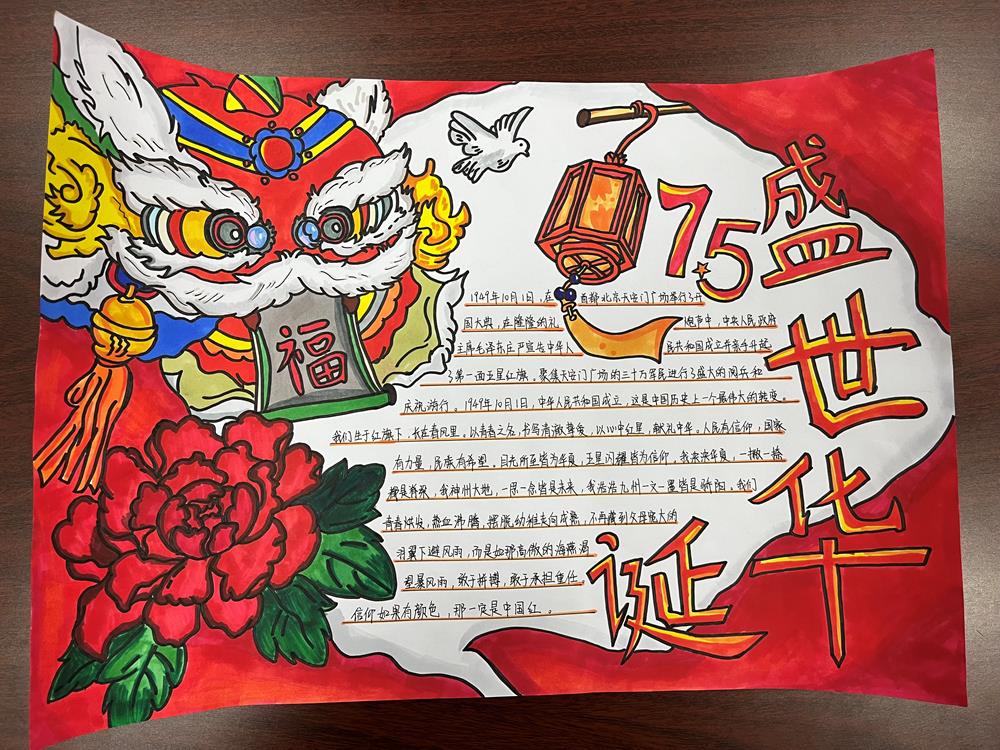 福
75
盛世华诞
1949年10月1日，在首都北京天安门广场举行了开
国大典，在隆隆的礼炮声中，中央人民政府
主席毛泽东庄严宣告中华人民共和国成立并亲手升起
了第一面五星红旗。聚集天安门广场的三十万军民进行了盛大的阅兵和
庆祝游行。1949年10月1日，中华人民共和国成立，这是中国历史上一个最伟大的转变。
我们生于红旗下，长在春风里。以青春之名，书写清澈挚爱，以心中红星，献礼中华。人民有信仰，国家
有力量，民族有希望。目光所至皆为华夏，五星闪耀皆为信仰。我泱泱华夏，一撇一捺
皆是脊梁，我神州大地，一思一念皆是未来，我浩浩九州一文一墨皆是骄阳。我们
青春焕发，热血沸腾，摆脱幼稚走向成熟，不再藏到父母宽大的
羽翼下避风雨，而是如那高傲的海燕渴
望暴风雨，敢于拼搏，敢于承担重任。
信仰如果有颜色，那一定是中国红。